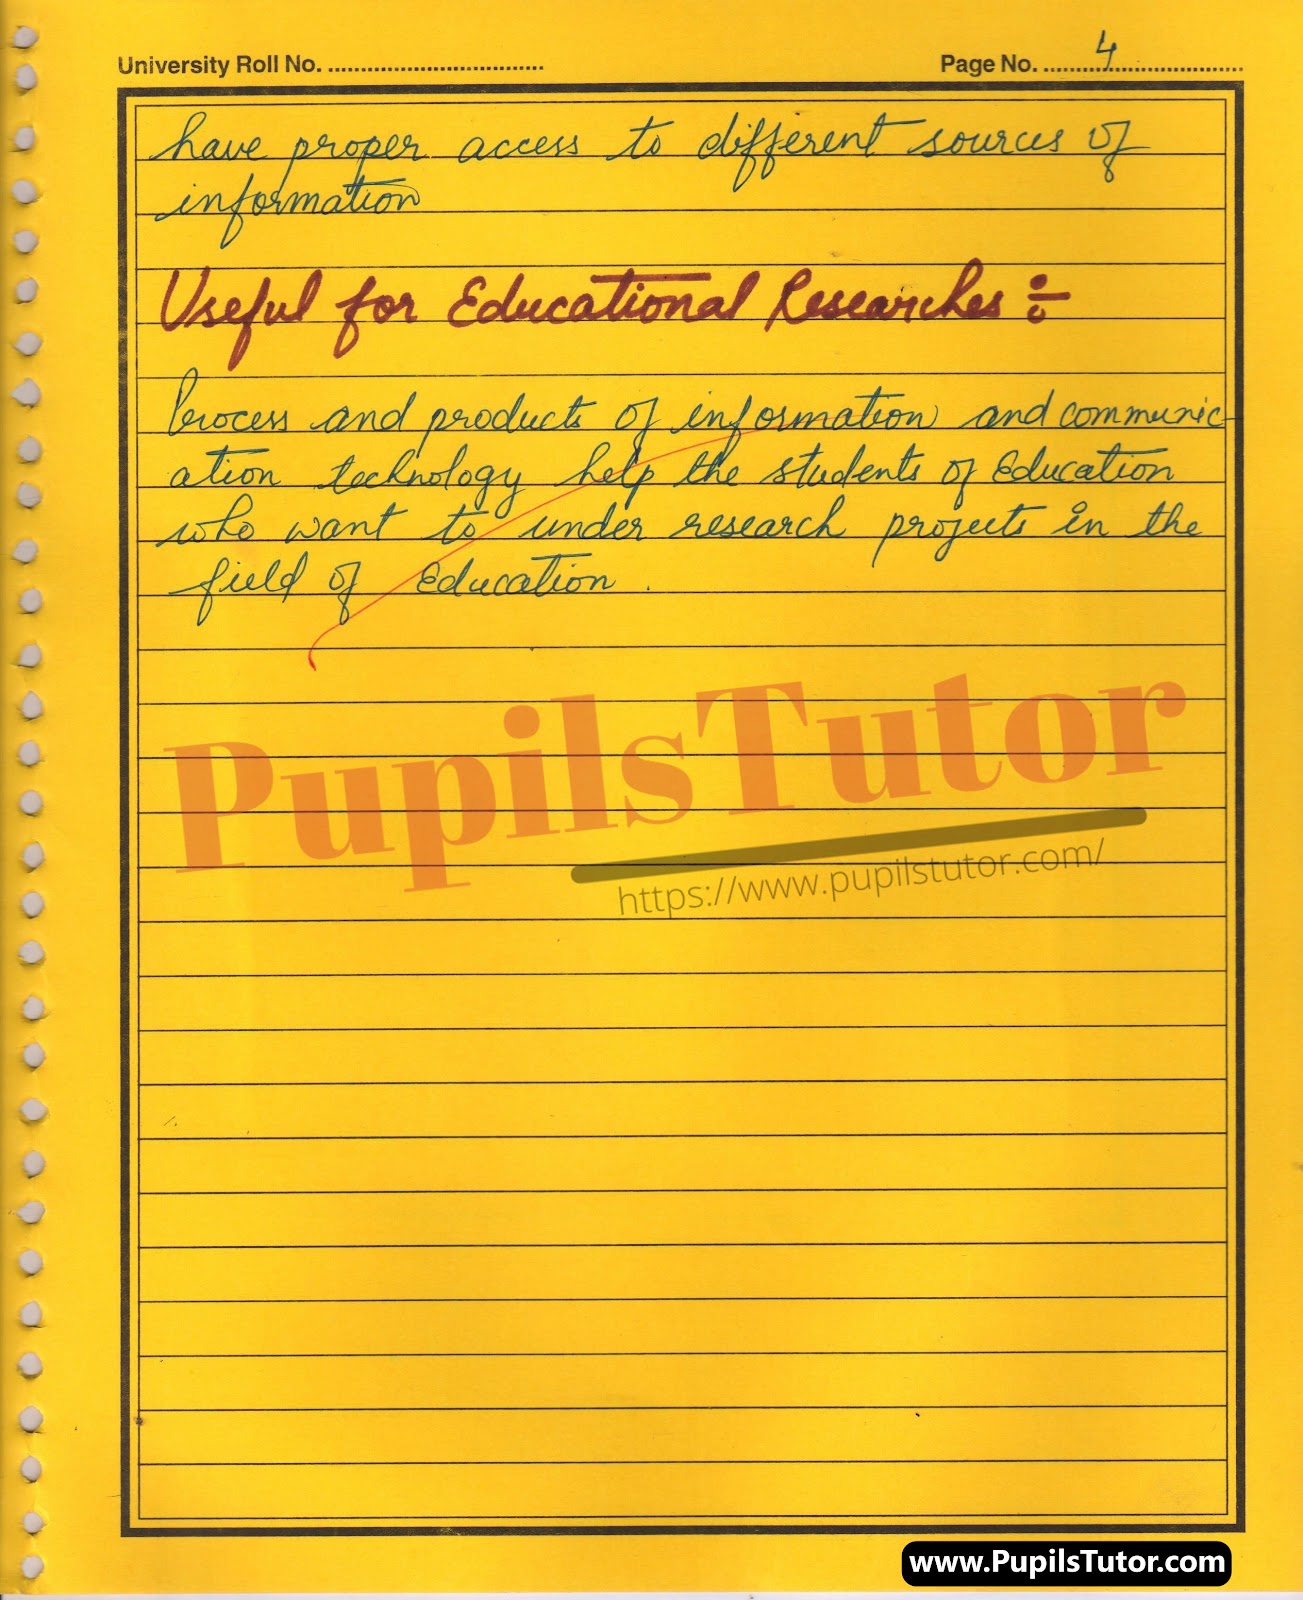 University Roll No. .................................
Page No. ........4......................
have proper access to different sources of
information
Useful for Educational Researches :-
Process and products of information and communic
ation technology help the students of Education
who want to under research projects in the
field of Education .
PupilsTutor
https://www.pupilstutor.com/
www.PupilsTutor.com